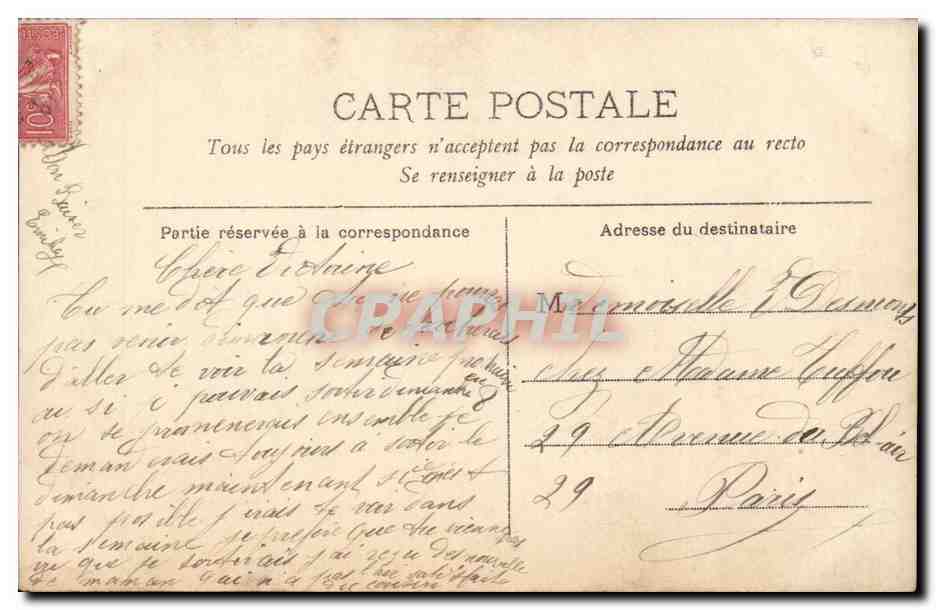 10c
CARTE POSTALE
Tous les pays étrangers n'acceptent pas la correspondance au recto
Se renseigner à la poste
Bon Baiser
Emily
Partie réservée à la correspondance
Adresse du destinataire
Chère Victorine
Tu me dit que tu ne pourras
pas venir dimanche je
d'aller te voir la semaine prochaine
ou si je pouvais sortir dimanche 8
on se promenerais ensemble je
demanderais toujours à sortir le
dimanche maintenant si c'est
pas possible j irais te voir dans
la semaine je préfère que tu viennes pas
vu que je sortirais j'ai reçu des nouvelle
de maman qui n'a pas été satisfaite
du cousin
CPAPHIL
Mademoiselle V Desmonts
chez Madame Tuffou
29 Avenue du Bel air
29 Paris